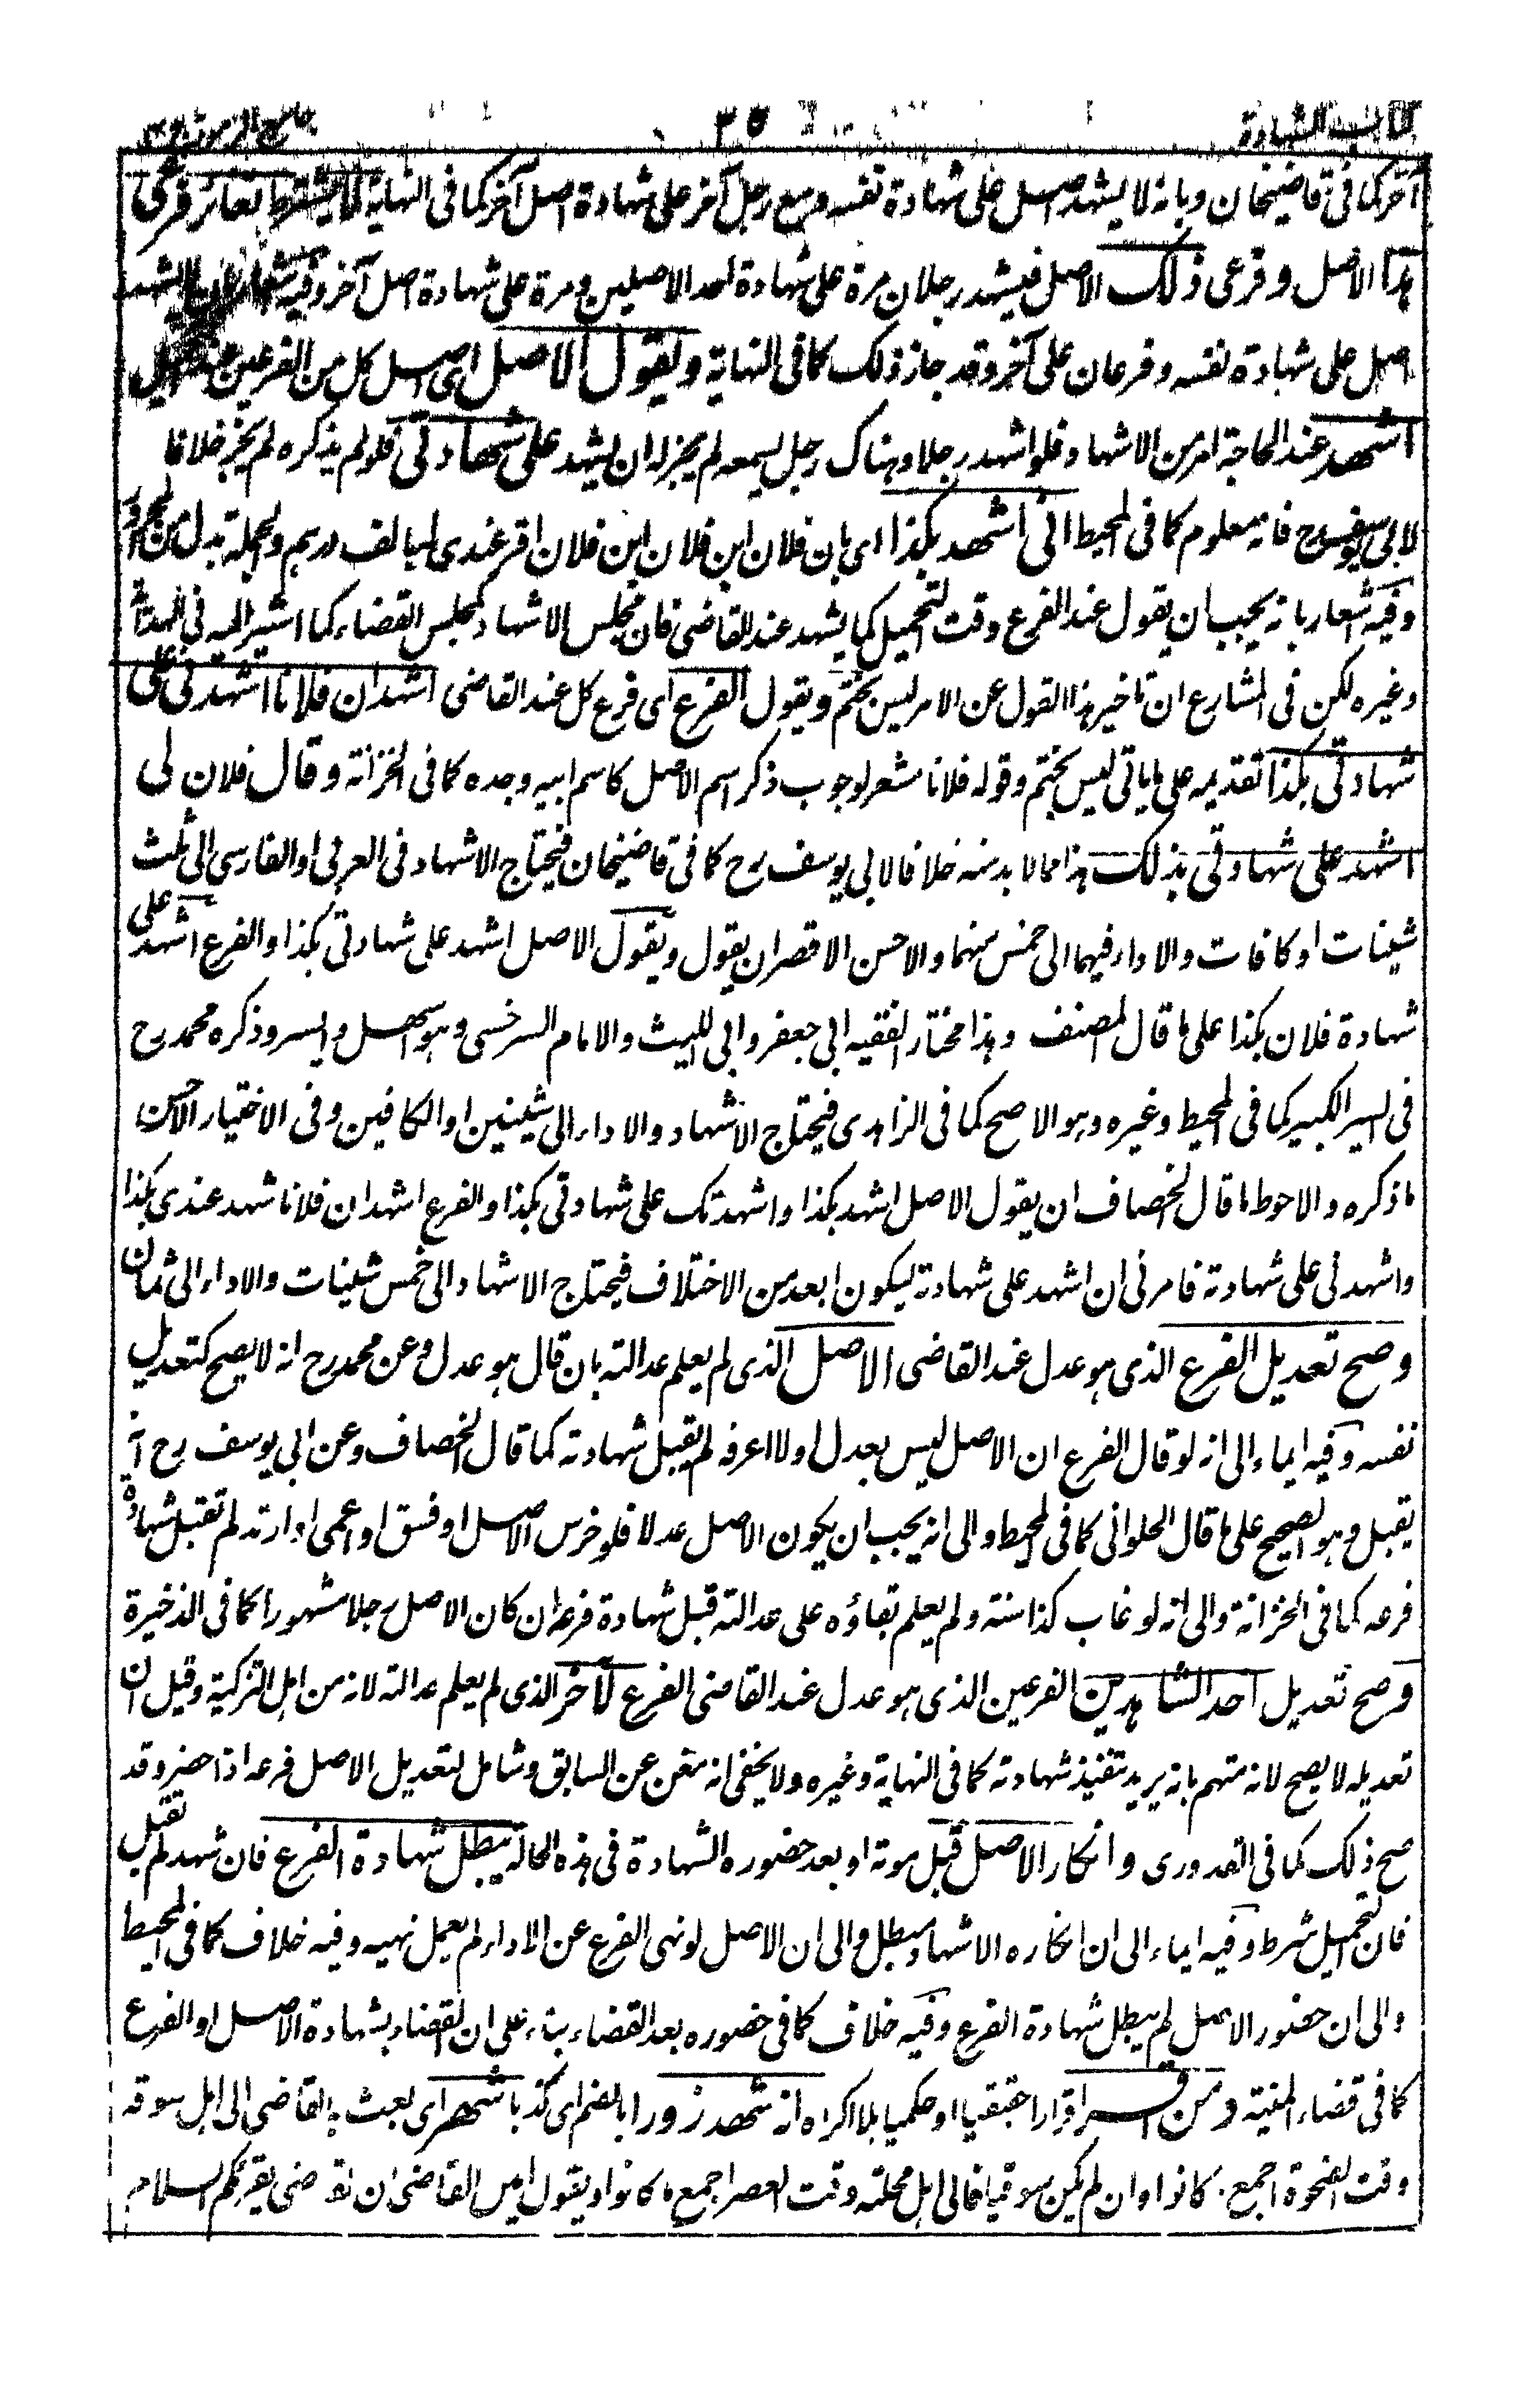 كتاب الشهادة ٣٥ جامع الرموز
آخر كما فى قاضيخان وبانه لا يشهد اصل على شهادة نفسه ومع رجل آخر على شهادة اصل آخر كما فى النهاية لا يشترط تغائر فرعى
هذا الاصل وفرعى ذلك الاصل فيشهد رجلان مرة على شهادة احد الاصلين ومرة على شهادة اصل آخر وفيه اشعار بان لا يشهد
اصل على شهادة نفسه وفرعان على آخر وقد جاز ذلك كما فى النهاية ويقول الاصل اى اصل كل من الفرعين عند التحميل
اشهد عند الحاجة امر من الاشهاد فلو اشهد رجلا وهناك رجل يسمعه لم يجز له ان يشهد على شهادتى فلو لم يذكره لم يجز خلافا
لابى يوسف رح فانه معلوم كما فى المحيط انى اشهد بكذا اى بان فلان ابن فلان ابن فلان اقر عندى لى بالف درهم والجملة بدل من المجرور
وفيه اشعار بانه يجب ان يقول عند الفرع وقت التحميل كما يشهد عند القاضى فان مجلس الاشهاد كمجلس القضاء كما اشير اليه فى الهداية
وغيره لكن فى المشارع ان تاخير هذا القول عن الامر ليس بحتم ويقول الفرع اى فرع كل عند القاضى اشهد ان فلانا اشهدنى على
شهادتى بكذا تقديمه على ما ياتى ليس بحتم وقوله فلانا مشعر لوجوب ذكر اسم الاصل كاسم ابيه وجده كما فى الخزانة وقال فلان لى
اشهد على شهادتى بذلك هذا مما لا بد منه خلافا لابى يوسف رح كما فى قاضيخان فيحتاج الاشهاد فى العربى او الفارسى الى ثلث
شينات او كافات والاداء فيهما الى خمس منهما والاحسن الاقصر ان يقول ويقول الاصل اشهد على شهادتى بكذا والفرع اشهد على
شهادة فلان بكذا على ما قال المصنف وهذا مختار الفقيه ابى جعفر وابى الليث والامام السرخسى وهو اسهل وايسر وذكره محمد رح
فى السير الكبير كما فى المحيط وغيره وهو الاصح كما فى الزاهدى فيحتاج الاشهاد والاداء الى شينين او الكافين وفى الاختيار الاحسن
ما ذكره والاحوط ما قال الخصاف ان يقول الاصل اشهد بكذا واشهدتك على شهادتى بكذا والفرع اشهد ان فلانا شهد عندى بكذا
واشهدنى على شهادته فامرنى ان اشهد على شهادته ليكون ابعد من الاختلاف فيحتاج الاشهاد الى خمس شينات والاداء الى ثمان
وصح تعديل الفرع الذى هو عدل عند القاضى الاصل الذى لم يعلم عدالته بان قال هو عدل وعن محمد رح انه لا يصح كتعديل
نفسه وفيه ايماء الى انه لو قال الفرع ان الاصل ليس بعدل او لا اعرفه لم يقبل شهادته كما قال الخصاف وعن ابى يوسف رح انه
يقبل وهو الصحيح على ما قال الحلوانى كما فى المحيط والى انه يجب ان يكون الاصل عدلا فلو خرس الاصل او فسق او اعمى او ارتد لم تقبل شهادة
فرعه كما فى الخزانة والى انه لو غاب كذا سنة ولم يعلم بقاؤه على عدالته قبل شهادة فرعه ان كان الاصل رجلا مشهورا كما فى الذخيرة
وصح تعديل احد الشاهدين الفرعين الذى هو عدل عند القاضى الفرع لآخر الذى لم يعلم عدالته لانه من اهل التزكية وقيل ان
تعديله لا يصح لانه متهم بانه يريد تنفيذ شهادته كما فى النهاية وغيره ولا يخفى انه مغن عن السابق وشامل لتعديل الاصل فرعه اذا حضر وقد
صح ذلك كما فى القدورى وانكار الاصل قبل موته او بعد حضوره الشهادة فى هذه الحالة يبطل شهادة الفرع فان شهد لم تقبل
فان التحميل شرط وفيه ايماء الى ان انكاره الاشهاد مبطل والى ان الاصل لو نهى الفرع عن الاداء لم يعمل نهيه وفيه خلاف كما فى المحيط
والى ان حضور الاصل لم يبطل شهادة الفرع وفيه خلاف كما فى حضوره بعد القضاء بناء على ان القضاء بشهادة الاصل او الفرع
كما فى قضاء المنية ومن اقر اقرارا حقيقيا او حكميا بلا اكراه انه شهد زورا بالضم اى كذبا شهر اى بعث به القاضى الى اهل سوقه
وقت الضحوة اجمع ما كانوا وان لم يكن سوقيا فالى اهل محلته وقت العصر اجمع ما كانوا ويقول امين القاضى ان القاضى يقرئكم السلام